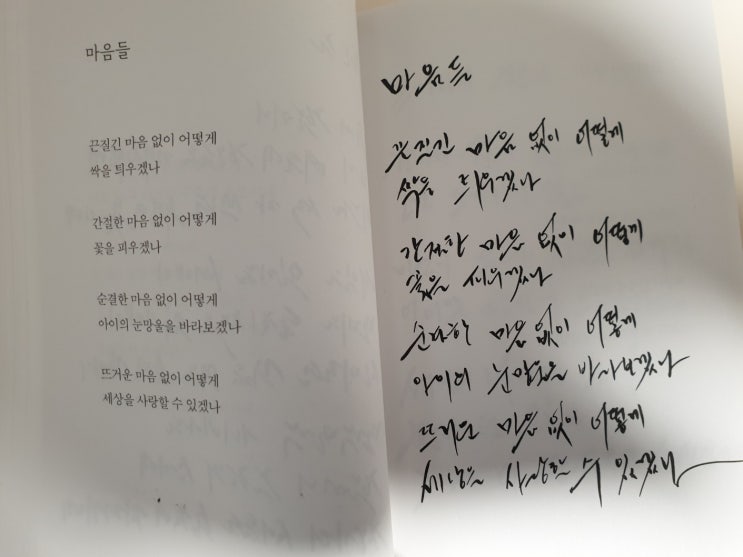 마음들
끈질긴 마음 없이 어떻게
싹을 틔우겠나
간절한 마음 없이 어떻게
꽃을 피우겠나
순결한 마음 없이 어떻게
아이의 눈망울을 바라보겠나
뜨거운 마음 없이 어떻게
세상을 사랑할 수 있겠나
마음들
끈질긴 마음 없이 어떻게
싹을 틔우겠나
간절한 마음 없이 어떻게
꽃을 피우겠나
순결한 마음 없이 어떻게
아이의 눈망울을 바라보겠나
뜨거운 마음 없이 어떻게
세상을 사랑할 수 있겠나